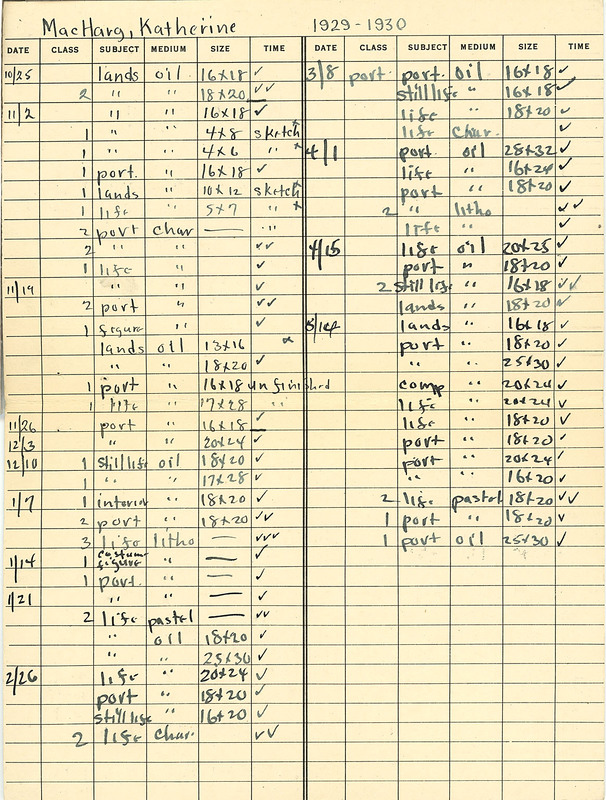 MacHarg, Katherine 1929-1930
DATE CLASS SUBJECT MEDIUM SIZE TIME
10/25 lands oil 16x18 ✓
2 " " 18x20 ✓✓
11/2 " " 16x18 ✓
1 " " 4x8 sketch x
1 " " 4x6 " x
1 port. " 16x18 ✓
1 lands " 10x12 sketch x
1 life " 5x7 " x
2 port char — "
2 " " ✓✓
1 life " ✓
11/19 " " ✓
2 port " ✓✓
1 figure " ✓
lands oil 13x16 x
" " 18x20 ✓
1 port " 16x18 unfinished
1 life " 17x28 "
11/26 port " 16x18 ✓
12/3 " " 20x24 ✓
12/10 1 still life oil 18x20 ✓
1 " " 17x28 ✓
1/7 1 interior " 18x20 ✓
2 port " 18x20 ✓✓
3 life litho — ✓✓✓
1/14 1 costume figure " — ✓
1 port. " — ✓
1/21 " " — ✓
2 life pastel — ✓✓
" oil 18x20 ✓
" " 25x30 ✓
2/26 life " 20x24 ✓
port " 18x20 ✓
still life " 16x20 ✓
2 life char. ✓✓
DATE CLASS SUBJECT MEDIUM SIZE TIME
3/8 port. port. oil 16x18 ✓
still life " 16x18 ✓
life " 18x20 ✓
life char. ✓
4/1 port. oil 28x32 ✓
life " 16x24 ✓
port " 18x20 ✓
2 " litho ✓✓
life " ✓
4/15 life oil 20x25 ✓
port " 18x20 ✓
2 still life " 16x18 ✓✓
lands " 18x20 ✓
lands " 16x18 ✓
port " 18x20 ✓
" " 25x30 ✓
comp " 20x24 ✓
life " 20x24 ✓
life " 18x20 ✓
port " 18x20 ✓
port " 20x24 ✓
" " 16x20 ✓
2 life pastel 18x20 ✓✓
1 port " 18x20 ✓
1 port oil 25x30 ✓